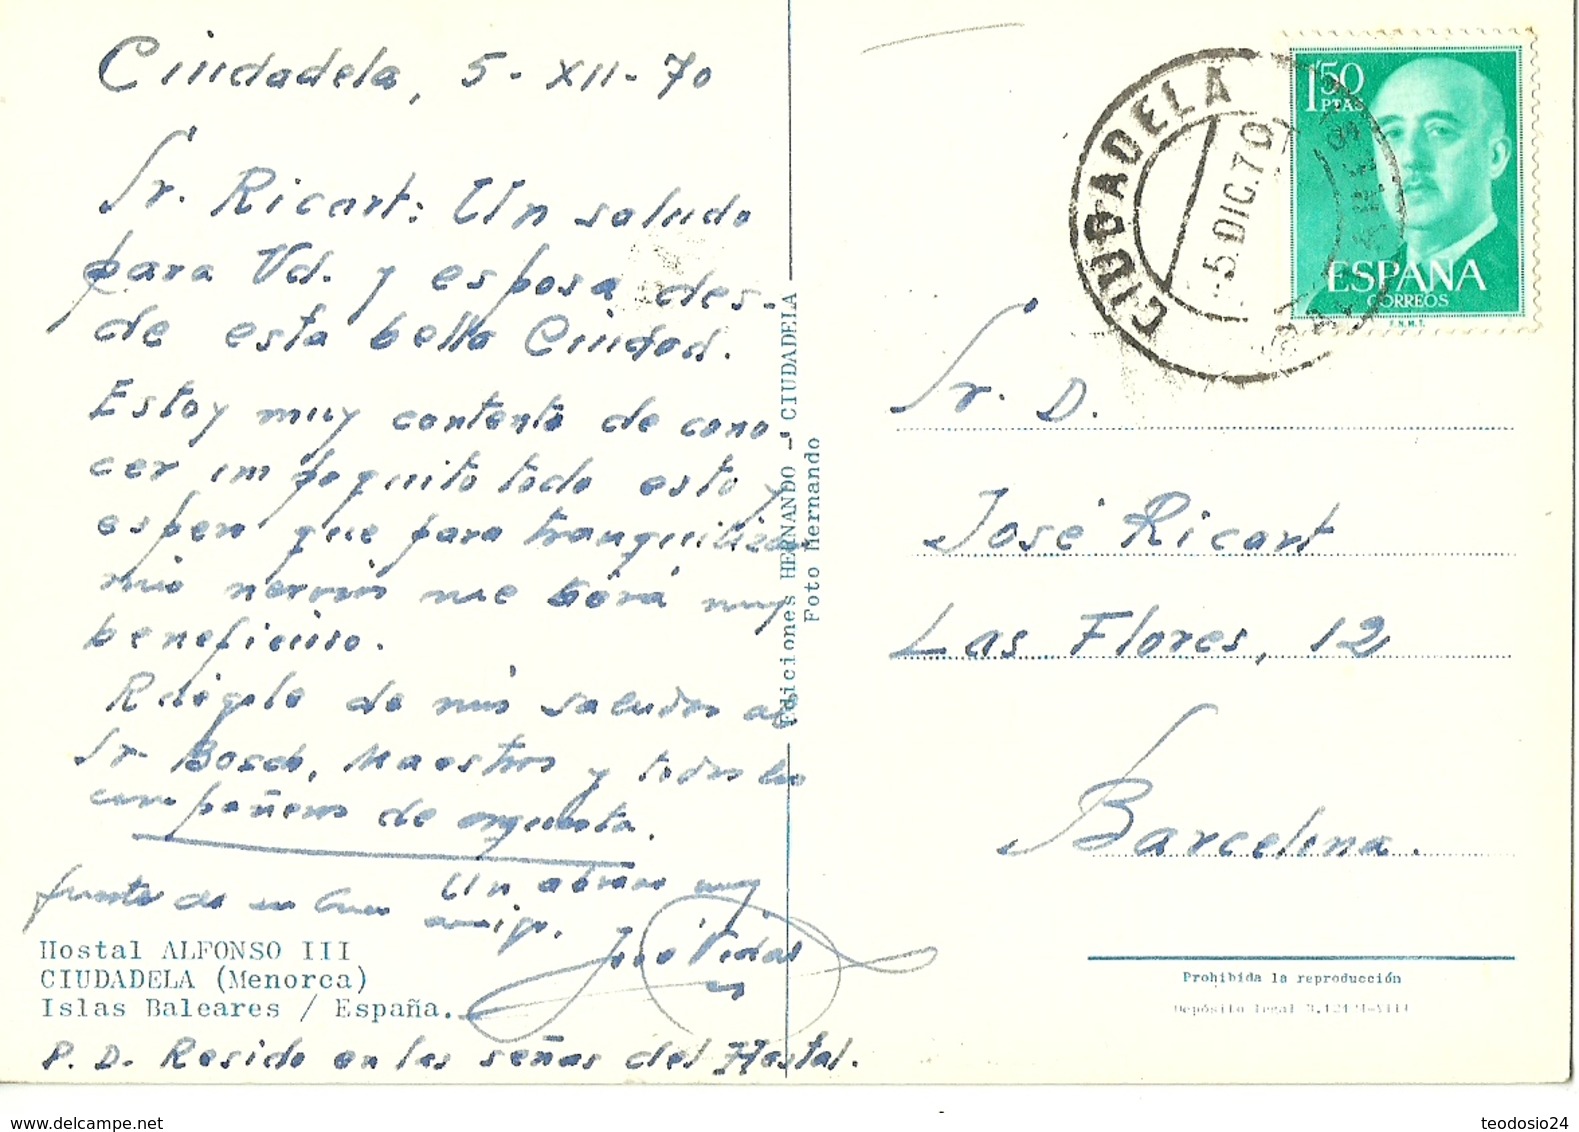 Ciudadela, 5-XII-70
Sr. Ricart: Un saludo
para Vd. y esposa des-
de esta bella Ciudad.
Estoy muy contento de cono-
cer un poquito todo esto y
espero que para tranquilizar
mis nervios me será muy
beneficioso.
Ruégole dé mis saludos al
Sr Bosch, Maestros y todos los
compañeros de orquesta.
Un abrazo muy
fuerte de su buen amigo.
José Vidal
Hostal ALFONSO III
CIUDADELA (Menorca)
Islas Baleares / España.
P.D. Resido en las señas del Hostal.
Ediciones HERNANDO - CIUDADELA
Foto Hernando
CIUDADELA
5.DIC.70
1'50
PTAS
ESPAÑA
CORREOS
F.N.M.T.
Sr. D.
José Ricart
Las Flores, 12
Barcelona.
Prohibida la reproducción
Depósito legal
www.delcampe.net
teodosio24